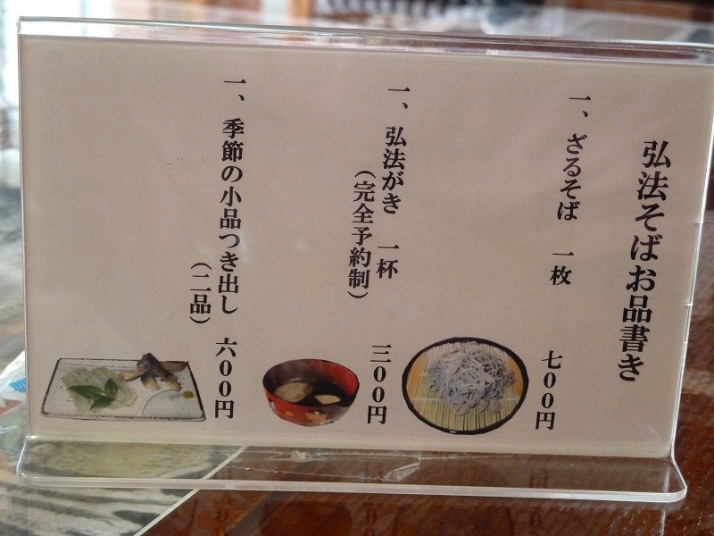 弘法そばお品書き
一、ざるそば 一枚 七００円
一、弘法がき 一杯 三００円
（完全予約制）
一、季節の小品つき出し 六００円
（二品）